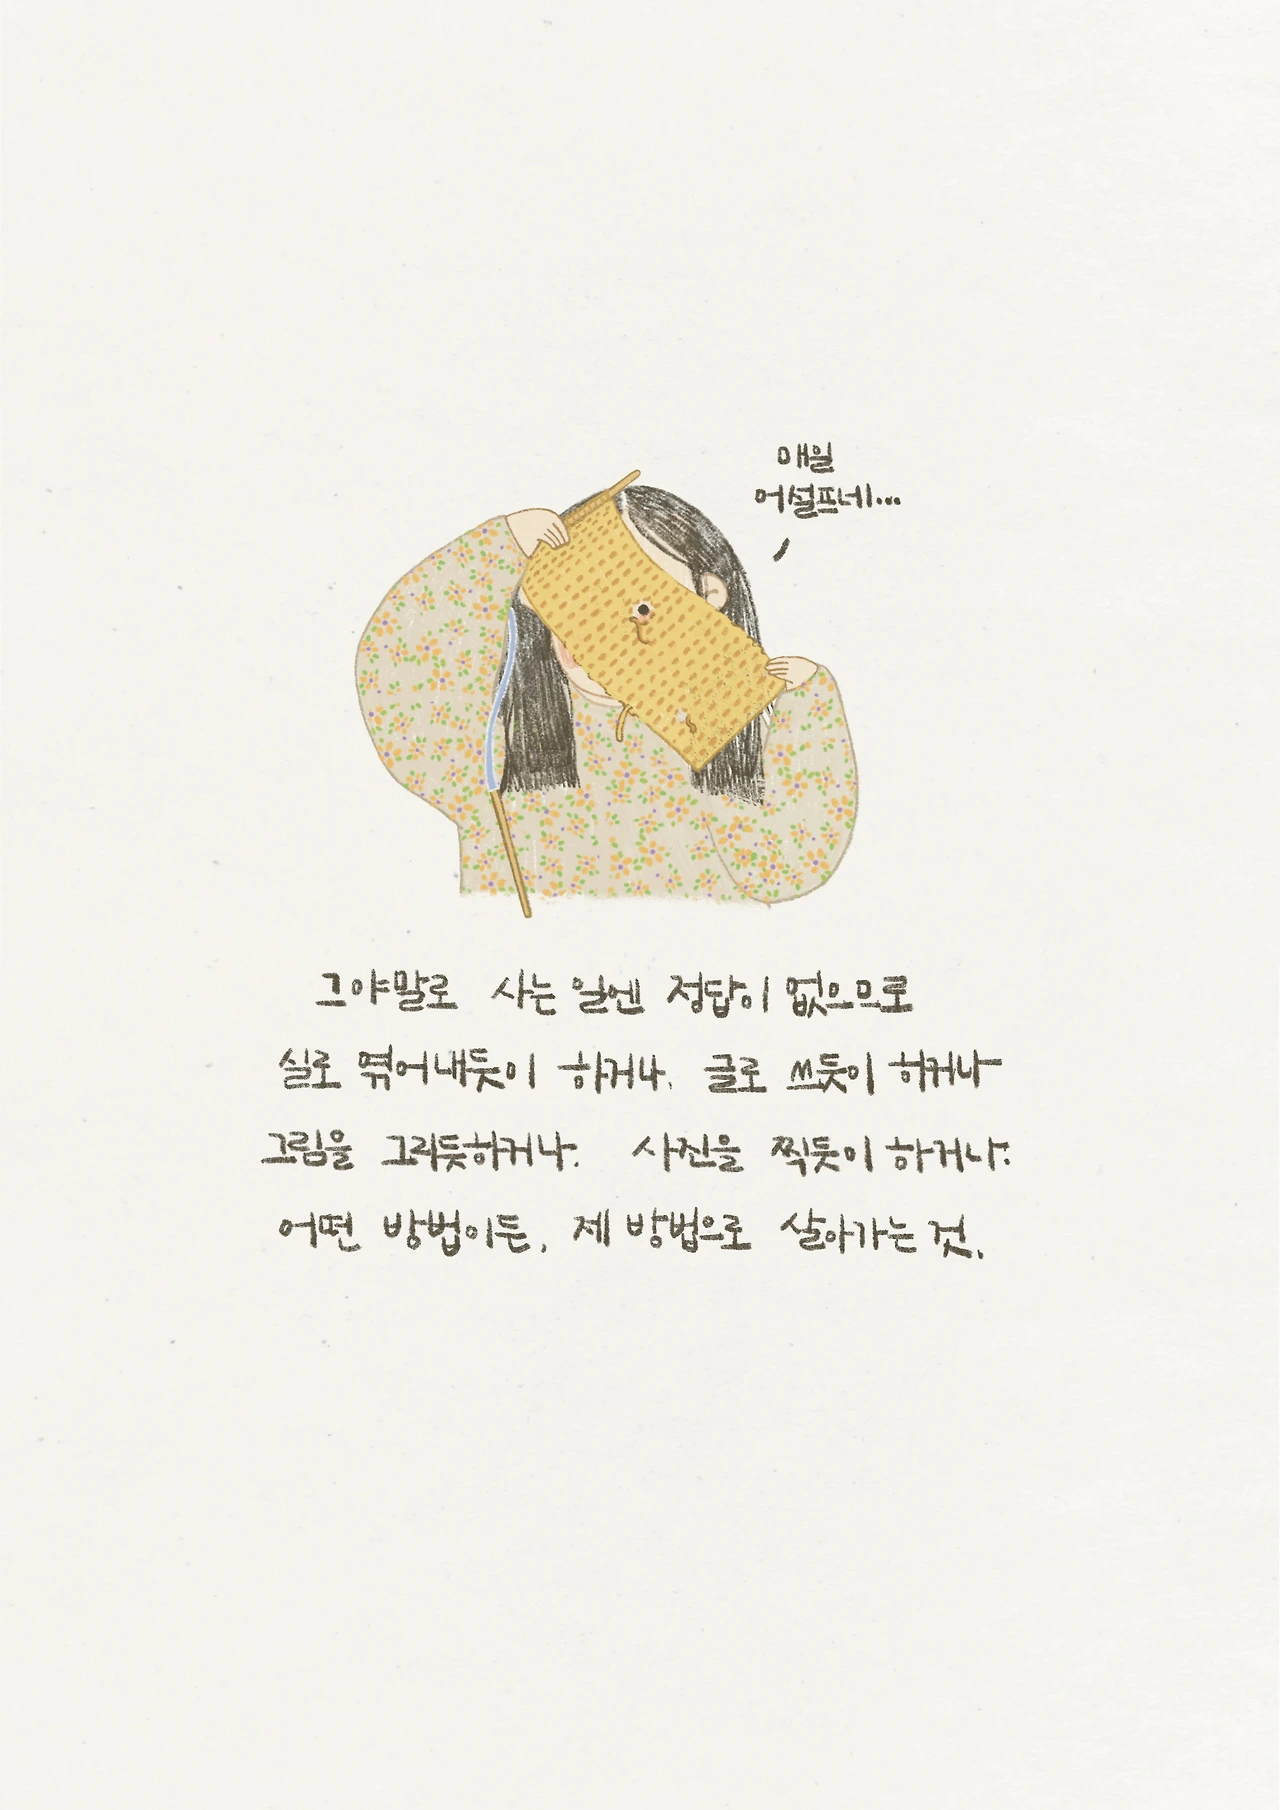 매일
어설프네...
그야말로 사는 일엔 정답이 없으므로
실로 엮어내듯이 하거나, 글로 쓰듯이 하거나
그림을 그리듯하거나. 사진을 찍듯이 하거나.
어떤 방법이든, 제 방법으로 살아가는 것.